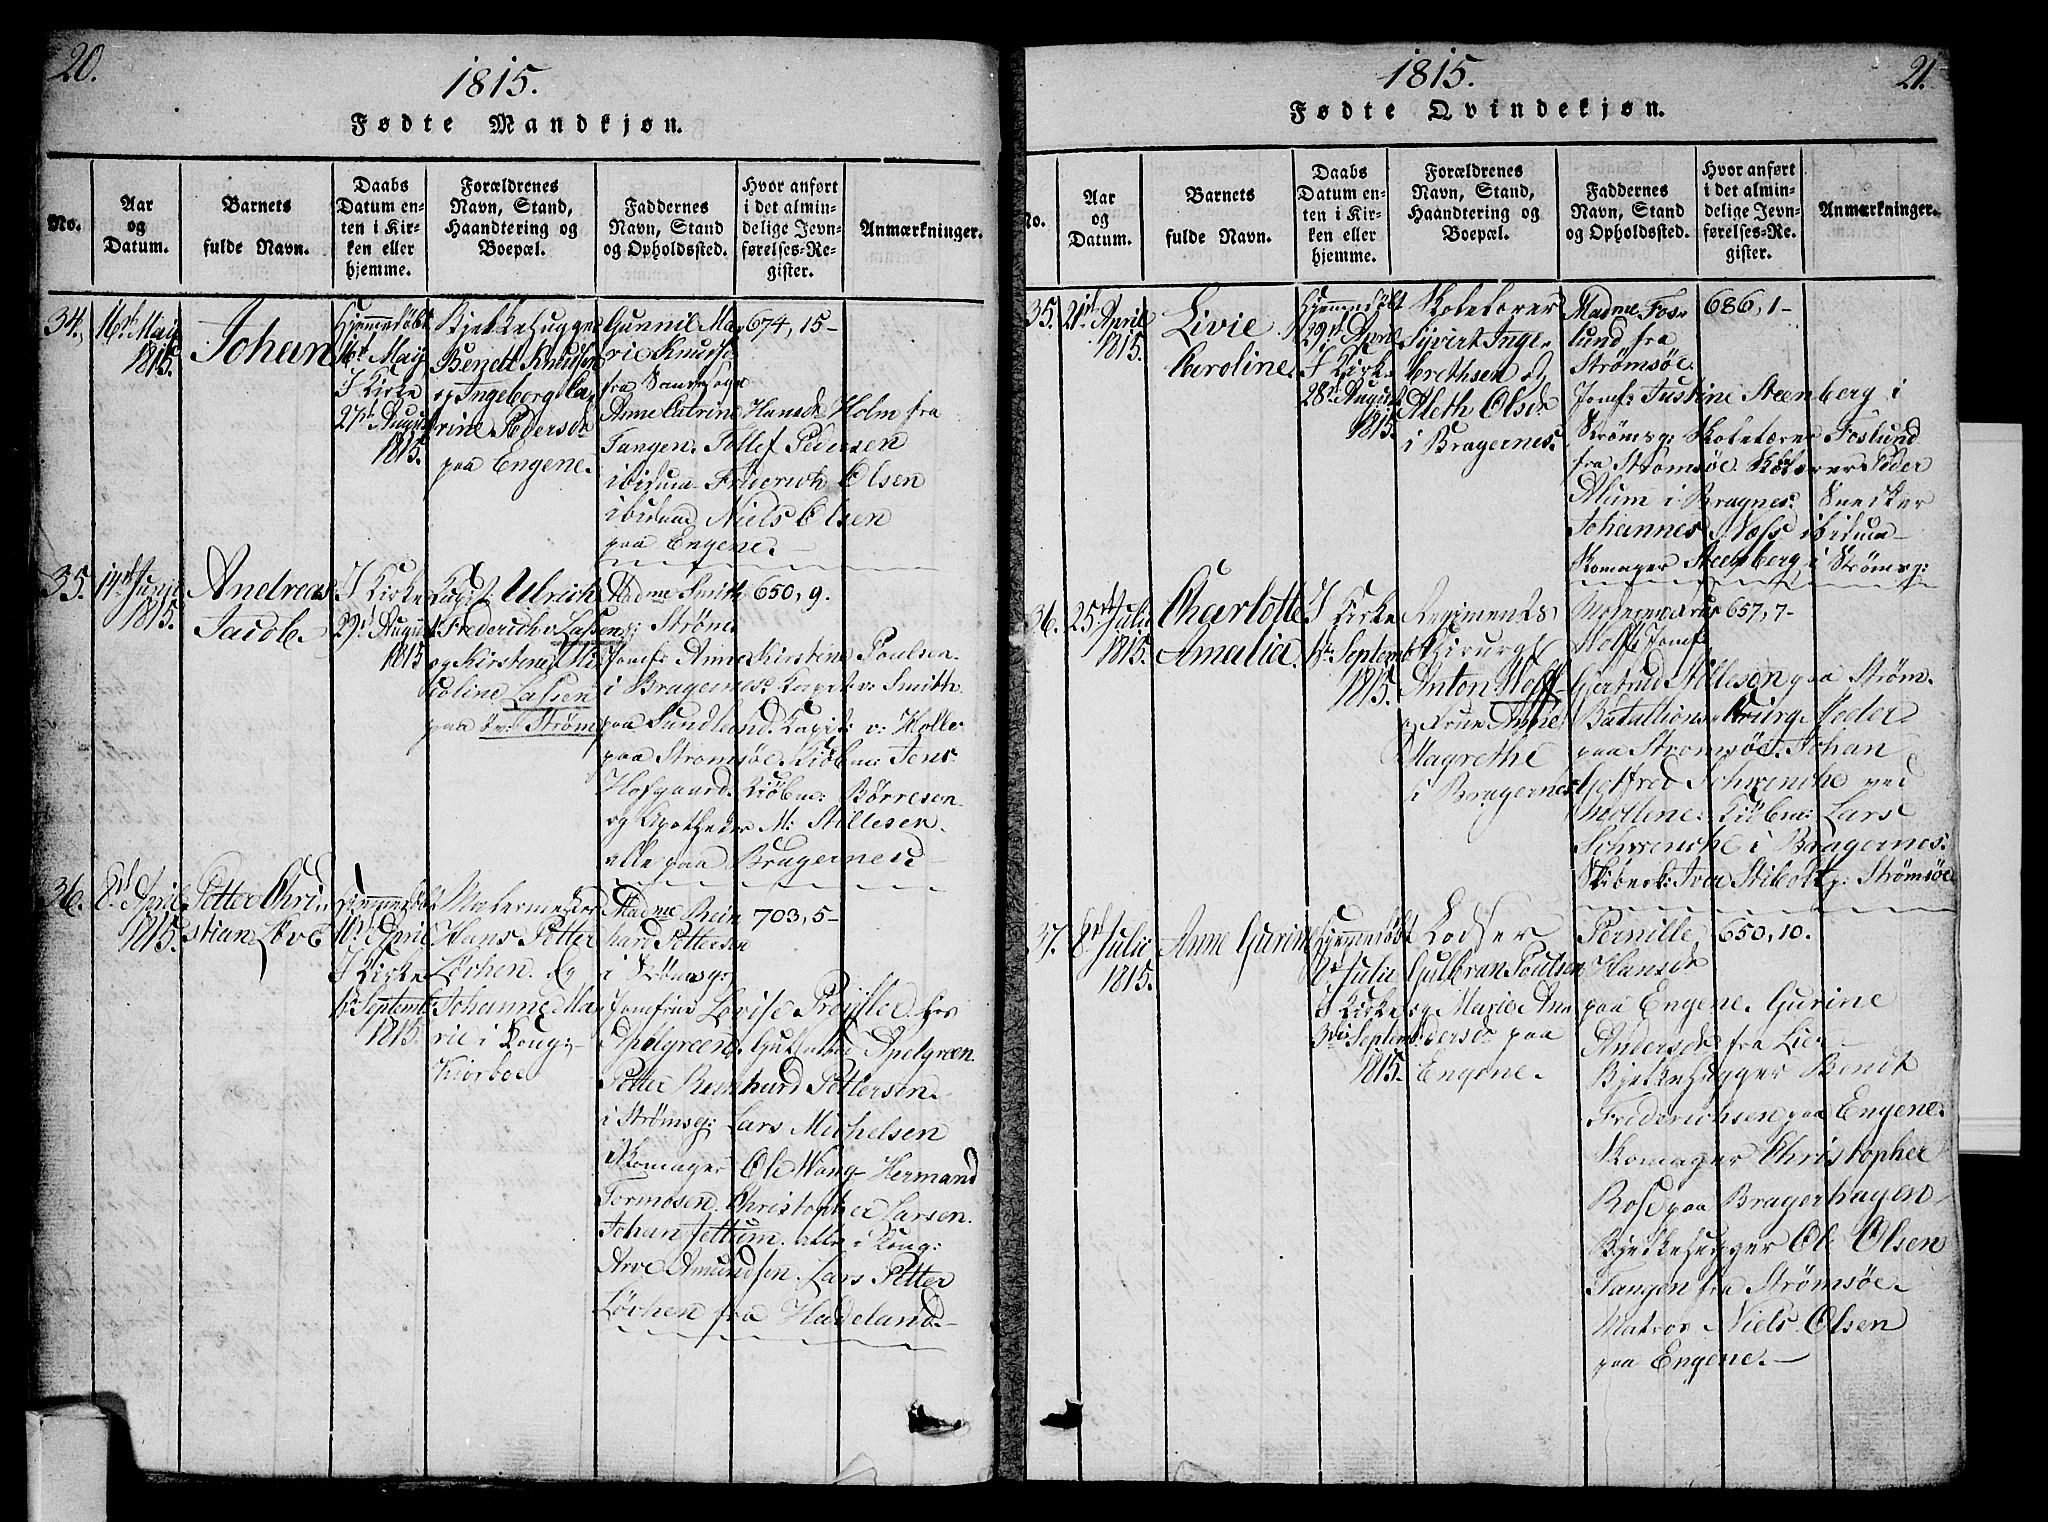 20.
1815.
Fødte Mandkjøn.
No.
Aar og Datum.
Barnets fulde Navn.
Daabs Datum enten i Kirken eller hjemme.
Forældrenes Navn, Stand, Haandtering og Boepæl.
Faddernes Navn, Stand og Opholdssted.
Hvor anført i det almindelige Jevnførelses-Register.
Anmærkninger.
34.
16de May
1815.
Johan
Hjemmedøbt
16de May
I Kirke
27de August
1815.
Bjelkehugger
Berett Knudsen
og Ingeborg Ca
rine Pedersdr
paa Engene.
Gunnil Ma
rie Knudsdr
fra Sandesogn
Anne Catrine Hansdr Holm fra
Tangen. Tollef Pedersen
ibidum Friderich Olsen
ibidum Niels Olsen
paa Engene.
674, 15-
35.
14de Junii
1815.
Andreas
Jacob
I Kirke
29de August
1815
Capit. Ulrich
Frederich v: Lassen
og Kirstene Ni
coline Lassen
paa Strøm
Madme Smith
Strøms
Jomf: Anne Kirstene Poulsen
i Bragernes: Capit v: Smith
paa Sundland. Capit: v: Holler
paa Strømsøe. Kiøbm: Jens
Hofgaard. Kiøbm: Børresen
og Apotheder M: Stillesen.
alle paa Bragernes
650, 9.
36.
8de April
1815.
Petter Chri
stian Love
Hjemmedøbt
10de April
I Kirke
1ste Septembr
1815.
Hans Petter
Lørchen. og
Johanne Ma
rie i Kong:
Madme Rein
hard Pettersen
i Strømsg:
Jomfrue Lovise Prøytler hos
Apelgreen. Apelgreen.
Petter Reinhard Pettersen
i Strømsg: Lars Michelsen
Skomager Ole Wang Hermand
Tormosen. Christopher Larsen.
Johan Settum. alle i Kong:
Arve Amundsen. Lars Petter
Lørchen fra Hadeland.
703, 5-
21.
1815.
Fødte Qvindekjøn.
No.
Aar og Datum.
Barnets fulde Navn.
Daabs Datum enten i Kirken eller hjemme.
Forældrenes Navn, Stand, Haandtering og Boepæl.
Faddernes Navn, Stand og Opholdssted.
Hvor anført i det almindelige Jevnførelses-Register.
Anmærkninger.
35.
21de April
1815.
Livie
Caroline.
Hjemmedøbt
29de April
I Kirke
28de August
1815.
Skolelærer
Sivert Inge
brethsen og
Aleth Olsdr
i Bragernes.
Madme Fos
lund fra
Strømsøe
Jomf: Justine Steenberg i
Strømsg: Skolelærer Foslund
fra Strømsøe. Peder
Alum i Bragnes: Snedker
Johannes Næss ibidum
Skomager Steenberg i Strømsg:
686, 1-
36.
25de Julii
1815.
Charlotte
Amalia.
I Kirke
1ste Septembr
1815.
Regiments
Chirurg
Anton Hoff
og Frue Anne
Magrethe
i Bragernes
Hoff. Jomf:
Gjertrud Stillesen paa Strøm.
Batallions Chirurg Meeler
paa Strømsøe. Johan
Gotfred Schwenche ved
Møllene. Kiøbm: Lars
Schwenche i Bragernes:
Skibsc: Iver Stibolt p: Strømsøe
657, 7-
37.
8de Julii
1815.
Anne Gurine
Hjemmedøbt
Julii
I Kirke
3die Septembr
1815.
Lodser
Gulbran Poulsen
og Marie An
dersdr paa
Engene.
Pernille
Hansdr
paa Engene. Gurine
Andersdr fra Lier
Bjelkehugger Bendt
Frederichsen paa Engene.
Skomager Christopher
Rose paa Bragerhagen
Bjelkehugger Ole Olsen
Tangen fra Strømsøe.
Matros Niels Olsen
paa Engene.
650, 10.